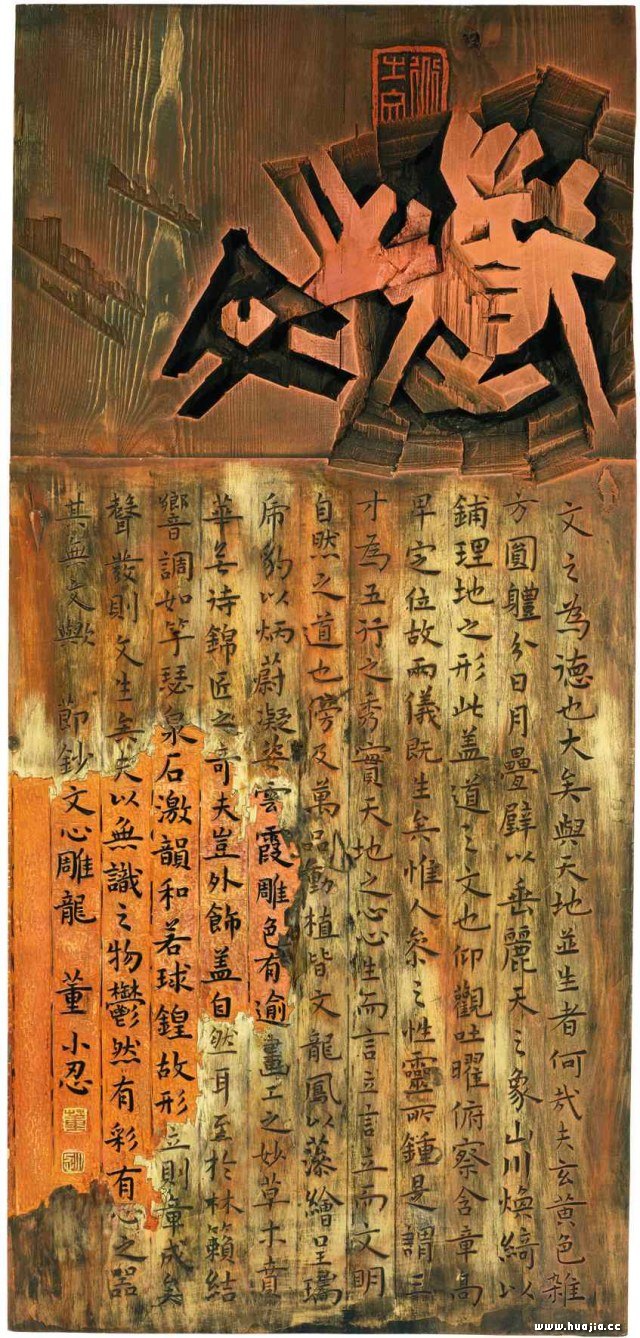 文之為德也大矣與天地並生者何哉夫玄黃色雜
方圓軆分日月疊璧以垂麗天之象山川煥綺以
鋪理地之形此盖道之文也仰觀吐曜俯察含章高
卑定位故兩儀既生矣惟人叅之性靈所鍾是謂三
才為五行之秀實天地之心心生而言立言立而文明
自然之道也傍及萬品動植皆文龍鳳以藻繪呈瑞
虎豹以炳蔚凝姿雲霞雕色有逾畫工之妙草木賁
華無待錦匠之奇夫豈外飾盖自然耳至於林籟結
響調如竽瑟泉石激韻和若球鍠故形立則章成矣
聲發則文生矣夫以無識之物鬱然有彩有心之器
其無文歟 節鈔文心雕龍 董小忍
www.huajia.cc